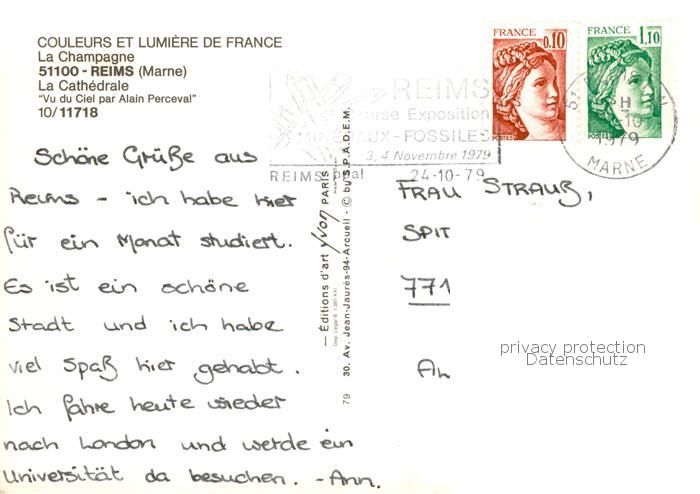 COULEURS ET LUMIÈRE DE FRANCE
La Champagne
51100 - REIMS (Marne)
La Cathédrale
"Vu du Ciel par Alain Perceval"
10/11718
Schöne Grüße aus
Reims - ich habe hier
für ein Monat studiert.
Es ist ein schöne
Stadt und ich habe
viel Spaß hier gehabt.
Ich fahre heute wieder
nach London und werde ein
Universität da besuchen. - Ann.
— Éditions d'art yvon PARIS
79 30. Av. Jean-Jaurès-94-Arcueil - © by S.P.A.D.E.M.
REIMS
Bourse Exposition
MINERAUX-FOSSILES
3, 4 Novembre 1979
REIMS 24-10-79
FRANCE
0,10
POSTES
FRANCE
1,10
POSTES
H
-10
1979
MARNE
FRAU STRAUß,
SPIT
771
privacy protection
Datenschutz